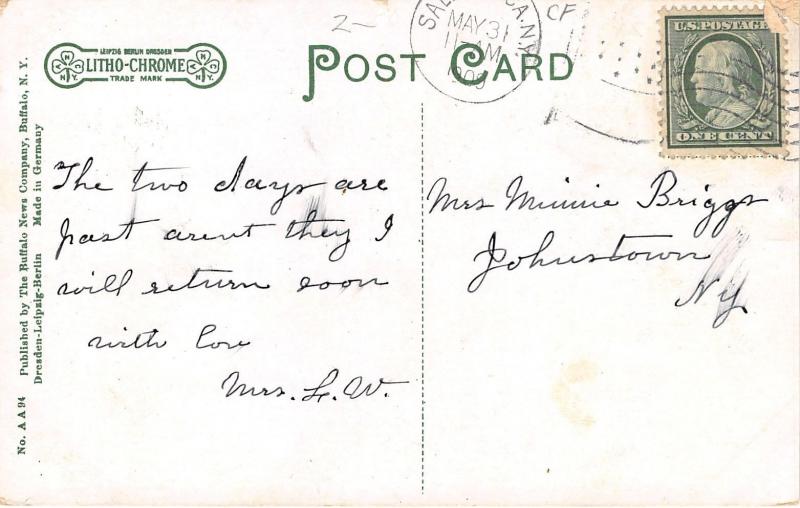 LEIPZIG BERLIN DRESDEN
LITHO-CHROME
TRADE MARK
POST CARD
2-
MAY 31
AM
1909
CF
U.S. POSTAGE
ONE CENT
No. A A 94 Published by The Buffalo News Company, Buffalo, N. Y.
Dresden-Leipzig-Berlin Made in Germany
The two days are
past arent they I
will return soon
with love
Mrs. L. W.
Mrs Minnie Briggs
Johnstown
Ny